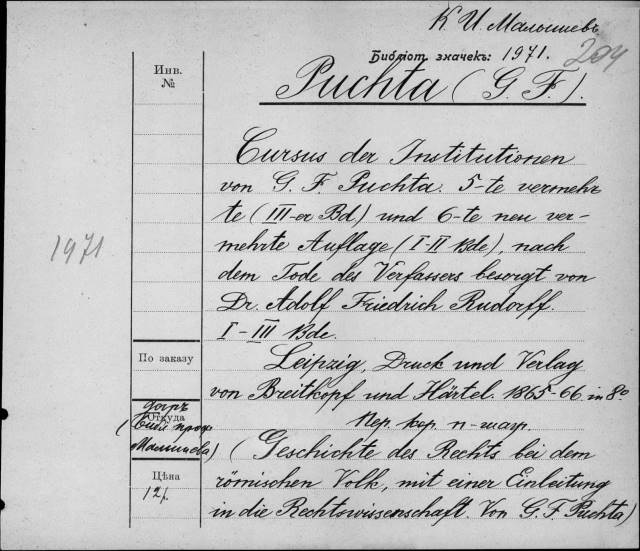 К. И. Малышевъ
Библіот. значекъ: 1971.
204
Инв.
№
Puchta (G. F.).
Cursus der Institutionen
von G. F. Puchta. 5-te vermehr
te (III-er Bd.) und 6-te neu ver-
mehrte Auflage (I-II Bde), nach
dem Tode des Verfassers besorgt von
Dr. Adolf Friedrich Rudorff.
I - III Bde.
1971
По заказу
Leipzig, Druck und Verlag
von Breitkopf und Härtel. 1865-66. in 8°
Пер. кор. п-шагр.
Откуда
Малышева)
(Geschichte des Rechts bei dem
römischen Volk, mit einer Einleitung
in die Rechtswissenschaft. Von G. F. Puchta)
Цѣна
12 р.